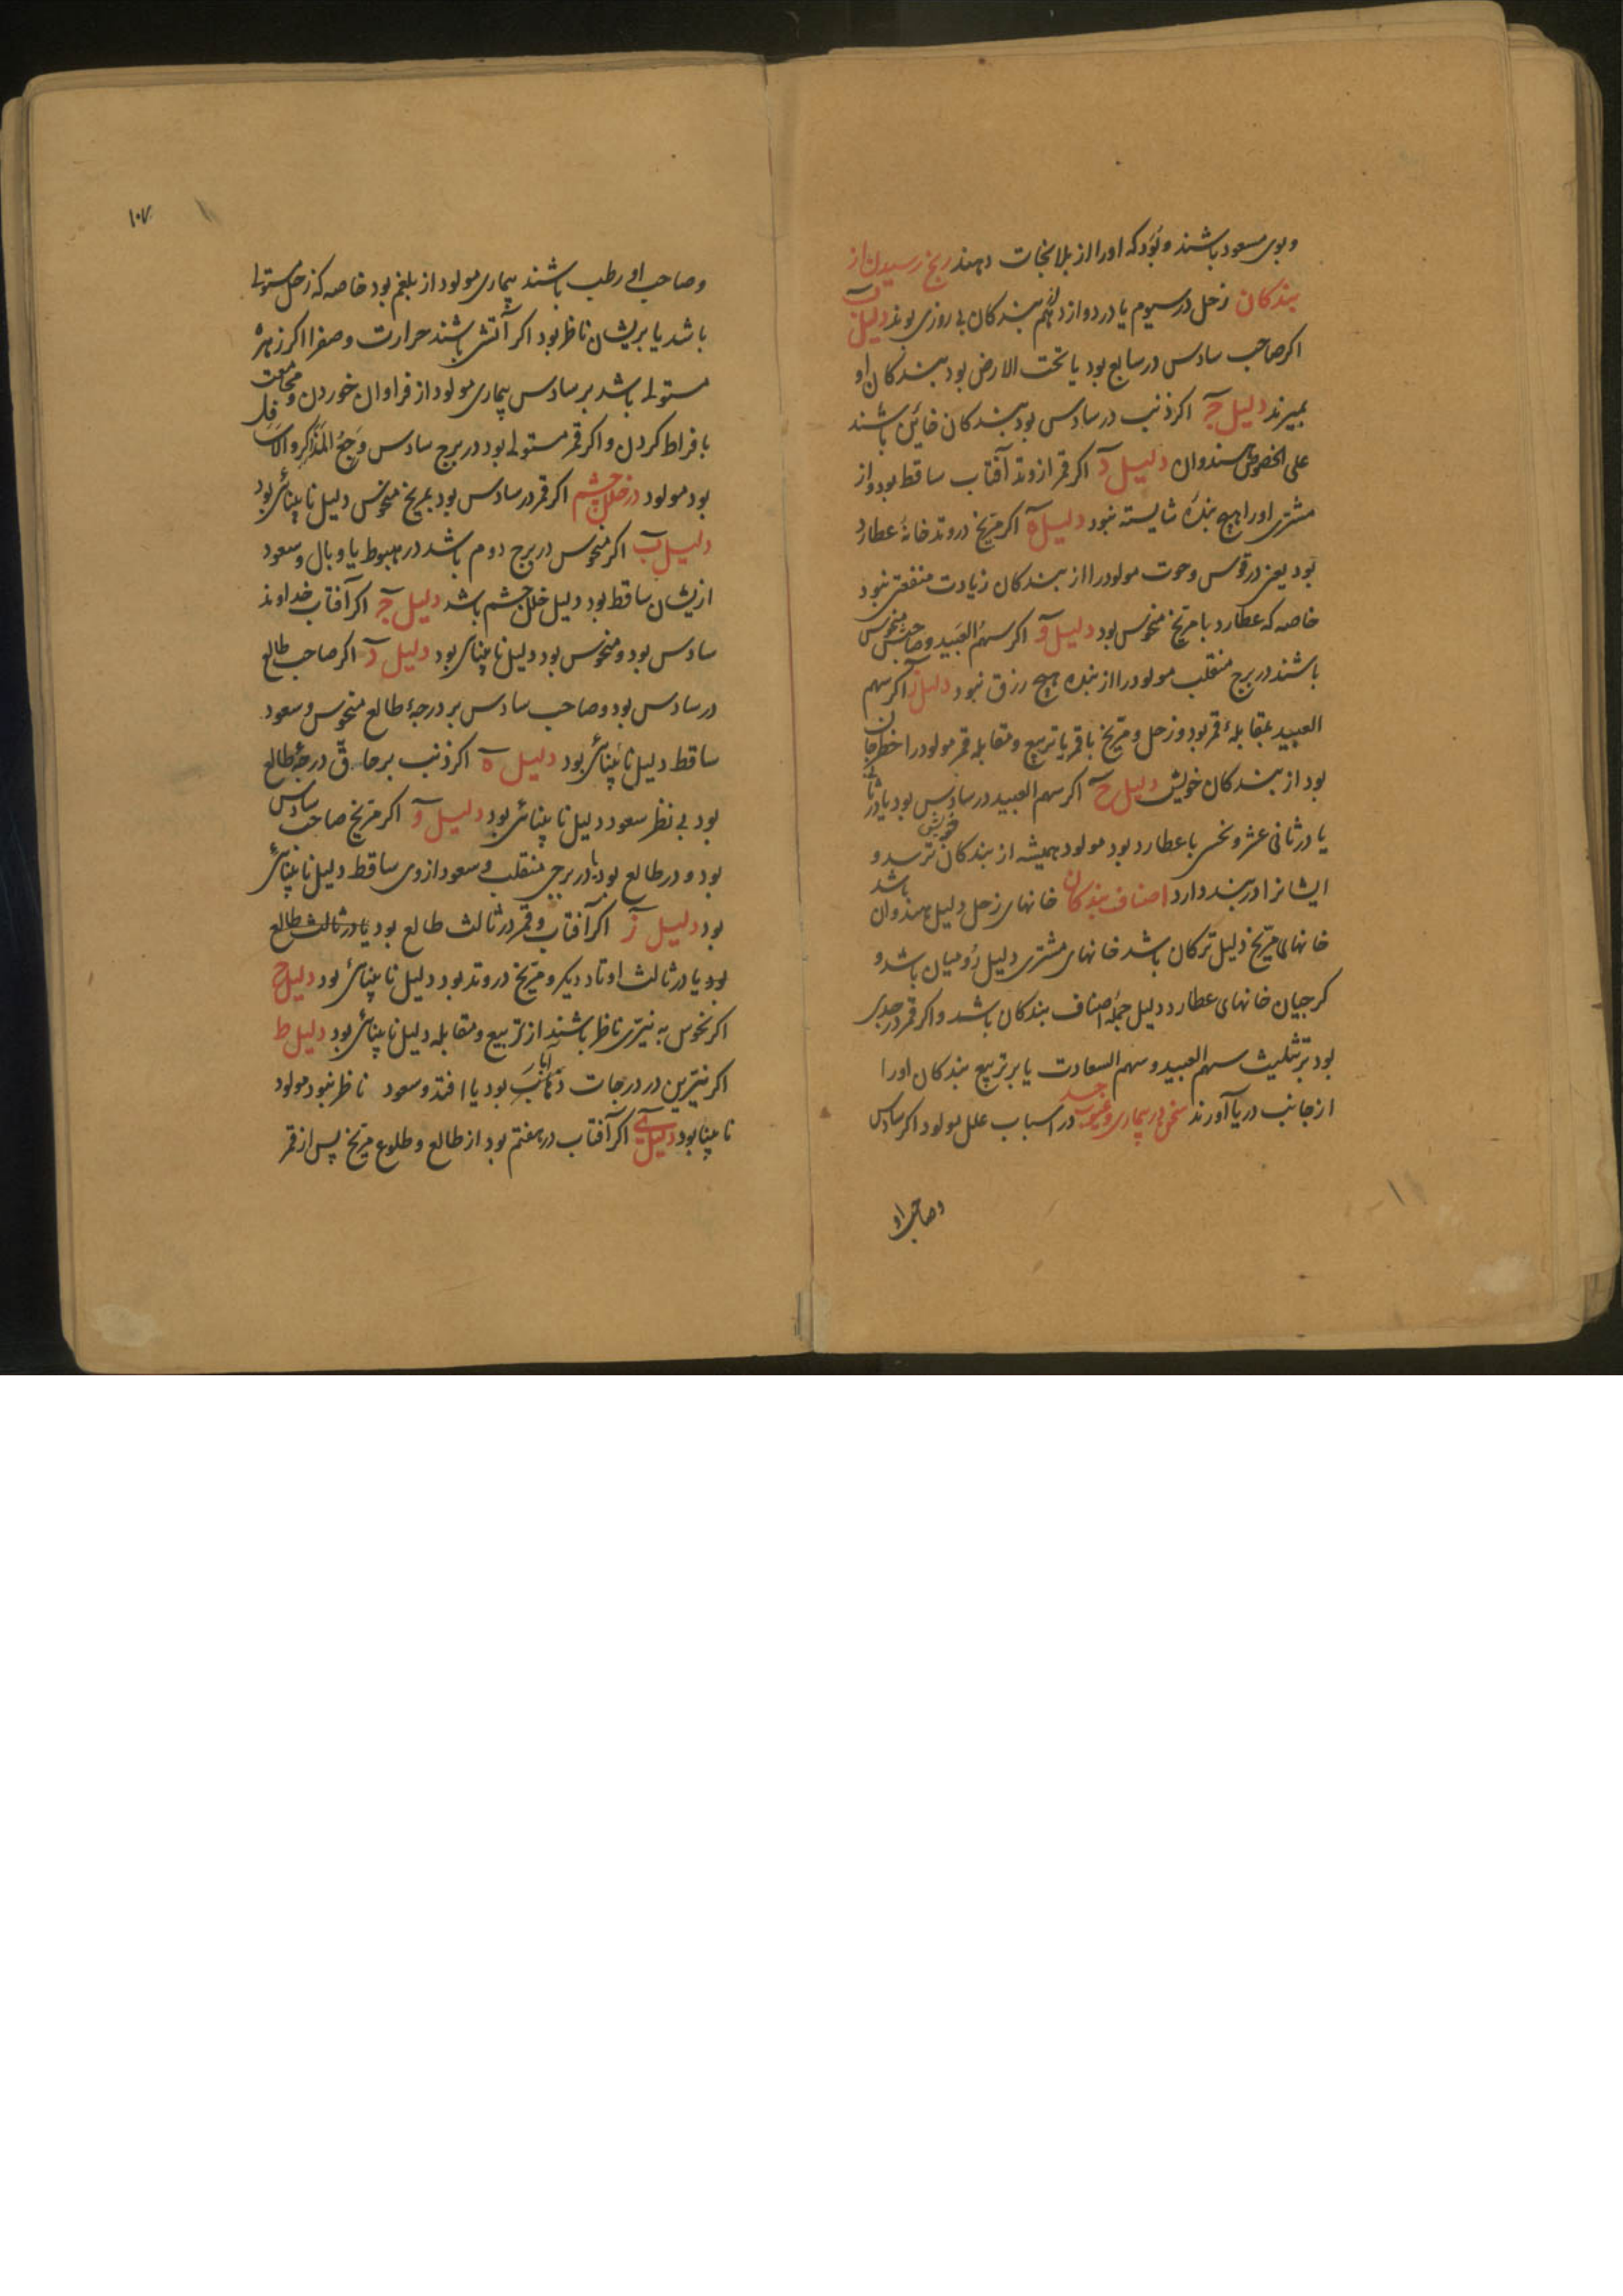 و بوی مسعود باشند و بُوَد که اورا از بلا نجات دهند رنج رسیدن از
بندکان زحل در سیوم یا در دوازدهم بندکان بی روزی بوند دلیل ب
اکر صاحب سادس در سابع بود یا تحت الارض بود بندکان او
بمیرند دلیل ج اکر ذنب در سادس بود بندکان خائین باشند
علی الخصوص هندوان دلیل د اکر قمر از وتد آفتاب ساقط بود و از
مشتری اورا هیچ بندهٔ شایسته نبود دلیل ه اکر مریخ در وتد خانهٔ عطارد
بود یعنی در قوس و حوت مولود را از بندکان زیادت منفعتی نبود
خاصه که عطارد با مریخ منحوس بود دلیل و اکر سهم العبید و صاحبش منحوس
باشند در برج منقلب مولود را از بنده هیچ رزق نبود دلیل ز اکر سهم
العبید بمقابلهٔ قمر بود و زحل و مریخ با قمر یا تربیع و مقابله قمر مولود را خطر جان
بود از بندکان خویش دلیل ح اکر سهم العبید در سادس بود یا در ثامن
یا در ثانی عشر و نحس با عطارد بود مولود همیشه از بندکان خویش ترسد و
ایشانرا در بند دارد اصناف بندکان خانهای زحل دلیل هندوان باشد
خانهای مریخ دلیل ترکان باشد خانهای مشتری دلیل رُومیان باشد و
کرجیان خانهای عطارد دلیل جملهٔ اصناف بندکان باشد و اکر قمر در جدی
بود بر تثلیث سهم العبید و سهم السعادت یا بر تربیع بندکان اورا
از جانب دریا آورند سخن در بیماری و عیوب جسد در اسباب علل مولود اکر سادس
و صاحب او
۱۰۷
و صاحب او رطب باشند بیماری مولود از بلغم بود خاصه که زحل مستولی
باشد یا بریشان ناظر بود اکر آتشی باشند حرارت و صفرا اکر زهره
مستولی باشد بر سادس بیماری مولود از فراوان خوردن و مجامعت
بافراط کردن و اکر قمر مستولی بود در برج سادس وَجَعُ المَذاکِر و الاَسافِل
بود مولود در خلل چشم اکر قمر در سادس بود بمریخ منحوس دلیل نابینائی بود
دلیل ب اکر منحوس در برج دوم باشد در هبوط یا وبال و سعود
ازیشان ساقط بود دلیل خلل چشم باشد دلیل ج اکر آفتاب خداوند
سادس بود و منحوس بود دلیل نابینای بود دلیل د اکر صاحب طالع
در سادس بود و صاحب سادس بر درجهٔ طالع منحوس و سعود
ساقط دلیل نابینائی بود دلیل ه اکر ذنب بر حاقّ درجهٔ طالع
بود بی نظر سعود دلیل نابینائی بود دلیل و اکر مریخ صاحب سادس
بود و در طالع بود یا در برجی منقلب و سعود از وی ساقط دلیل نابینائی
بود دلیل ز اکر آفتاب و قمر در ثالث طالع بود یا در ثالث طالع
بود یا در ثالث اوتاد دیکر و مریخ در وتد بود دلیل نابینائی بود دلیل ح
اکر نحوس به نیّری ناظر باشند از تربیع و مقابله دلیل نابینائی بود دلیل ط
اکر نیّرین در درجات آبار بود یا افتد و سعود ناظر نبود مولود
نابینا بود دلیل ی اکر آفتاب در هفتم بود از طالع و طلوع مریخ پس از قمر